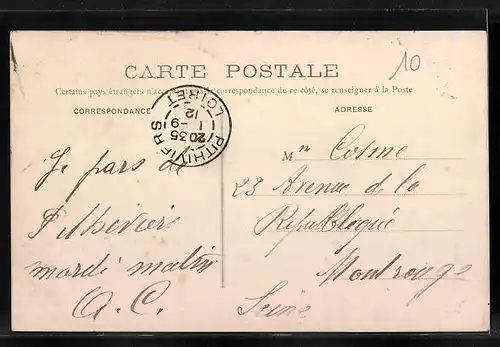 10
CARTE POSTALE
Certains pays étrangers n'acceptent pas de correspondance de ce côté, se renseigner à la Poste
CORRESPONDANCE
ADRESSE
PITHIVIERS
20 35
1 -9
12
LOIRET
Je pars de
Pithiviers
mardi matin
A. C.
Mr Cosme
23 Avenue de la
République
Montrouge
Seine